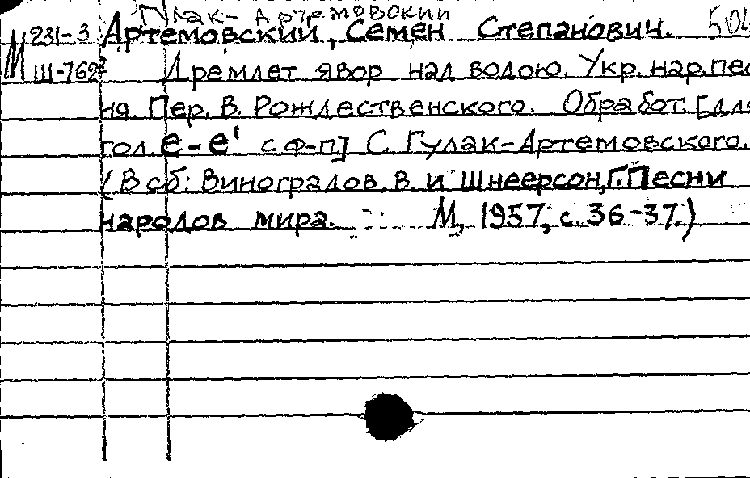 Гулак-Артемовский
М 231-3 Артемовский, Семен Степанович. 50
Ш-769 Дремлет явор над водою. Укр. нар. пес
ня. Пер. В. Рождественского. Обработ. [для
гол. e-e' с ф-п] С. Гулак-Артемовского.
(В сб: Виноградов, В. и Шнеерсон, Г. Песни
народов мира. М, 1957, с. 36-37.)